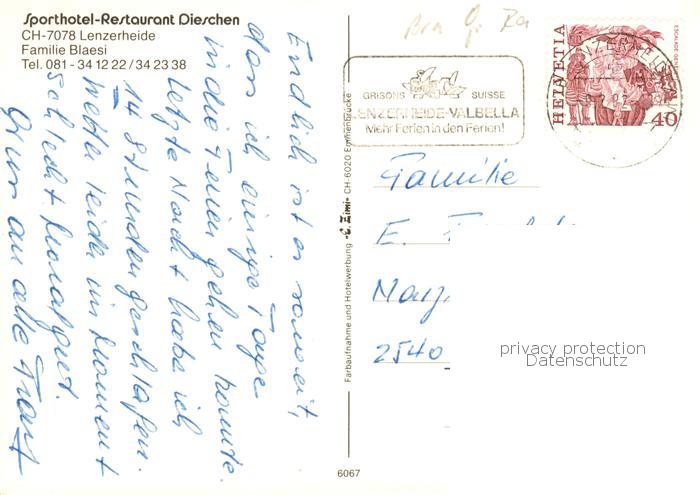 Sporthotel-Restaurant Dieschen
CH-7078 Lenzerheide
Familie Blaesi
Tel. 081 - 34 12 22 / 34 23 38
Endlich ist es soweit,
dass ich einige Tage
in die Ferien gehen konnte.
Letzte Nacht habe ich
14 Stunden geschlafen.
Wetter leider im Moment
schlecht
Gruss an alle
Farbaufnahme und Hotelwerbung «C. Zimi» CH-6020 Emmenbrücke
6067
GRISONS SUISSE
LENZERHEIDE-VALBELLA
Mehr Ferien in den Ferien!
HELVETIA
40
Familie
E.
2540
privacy protection
Datenschutz